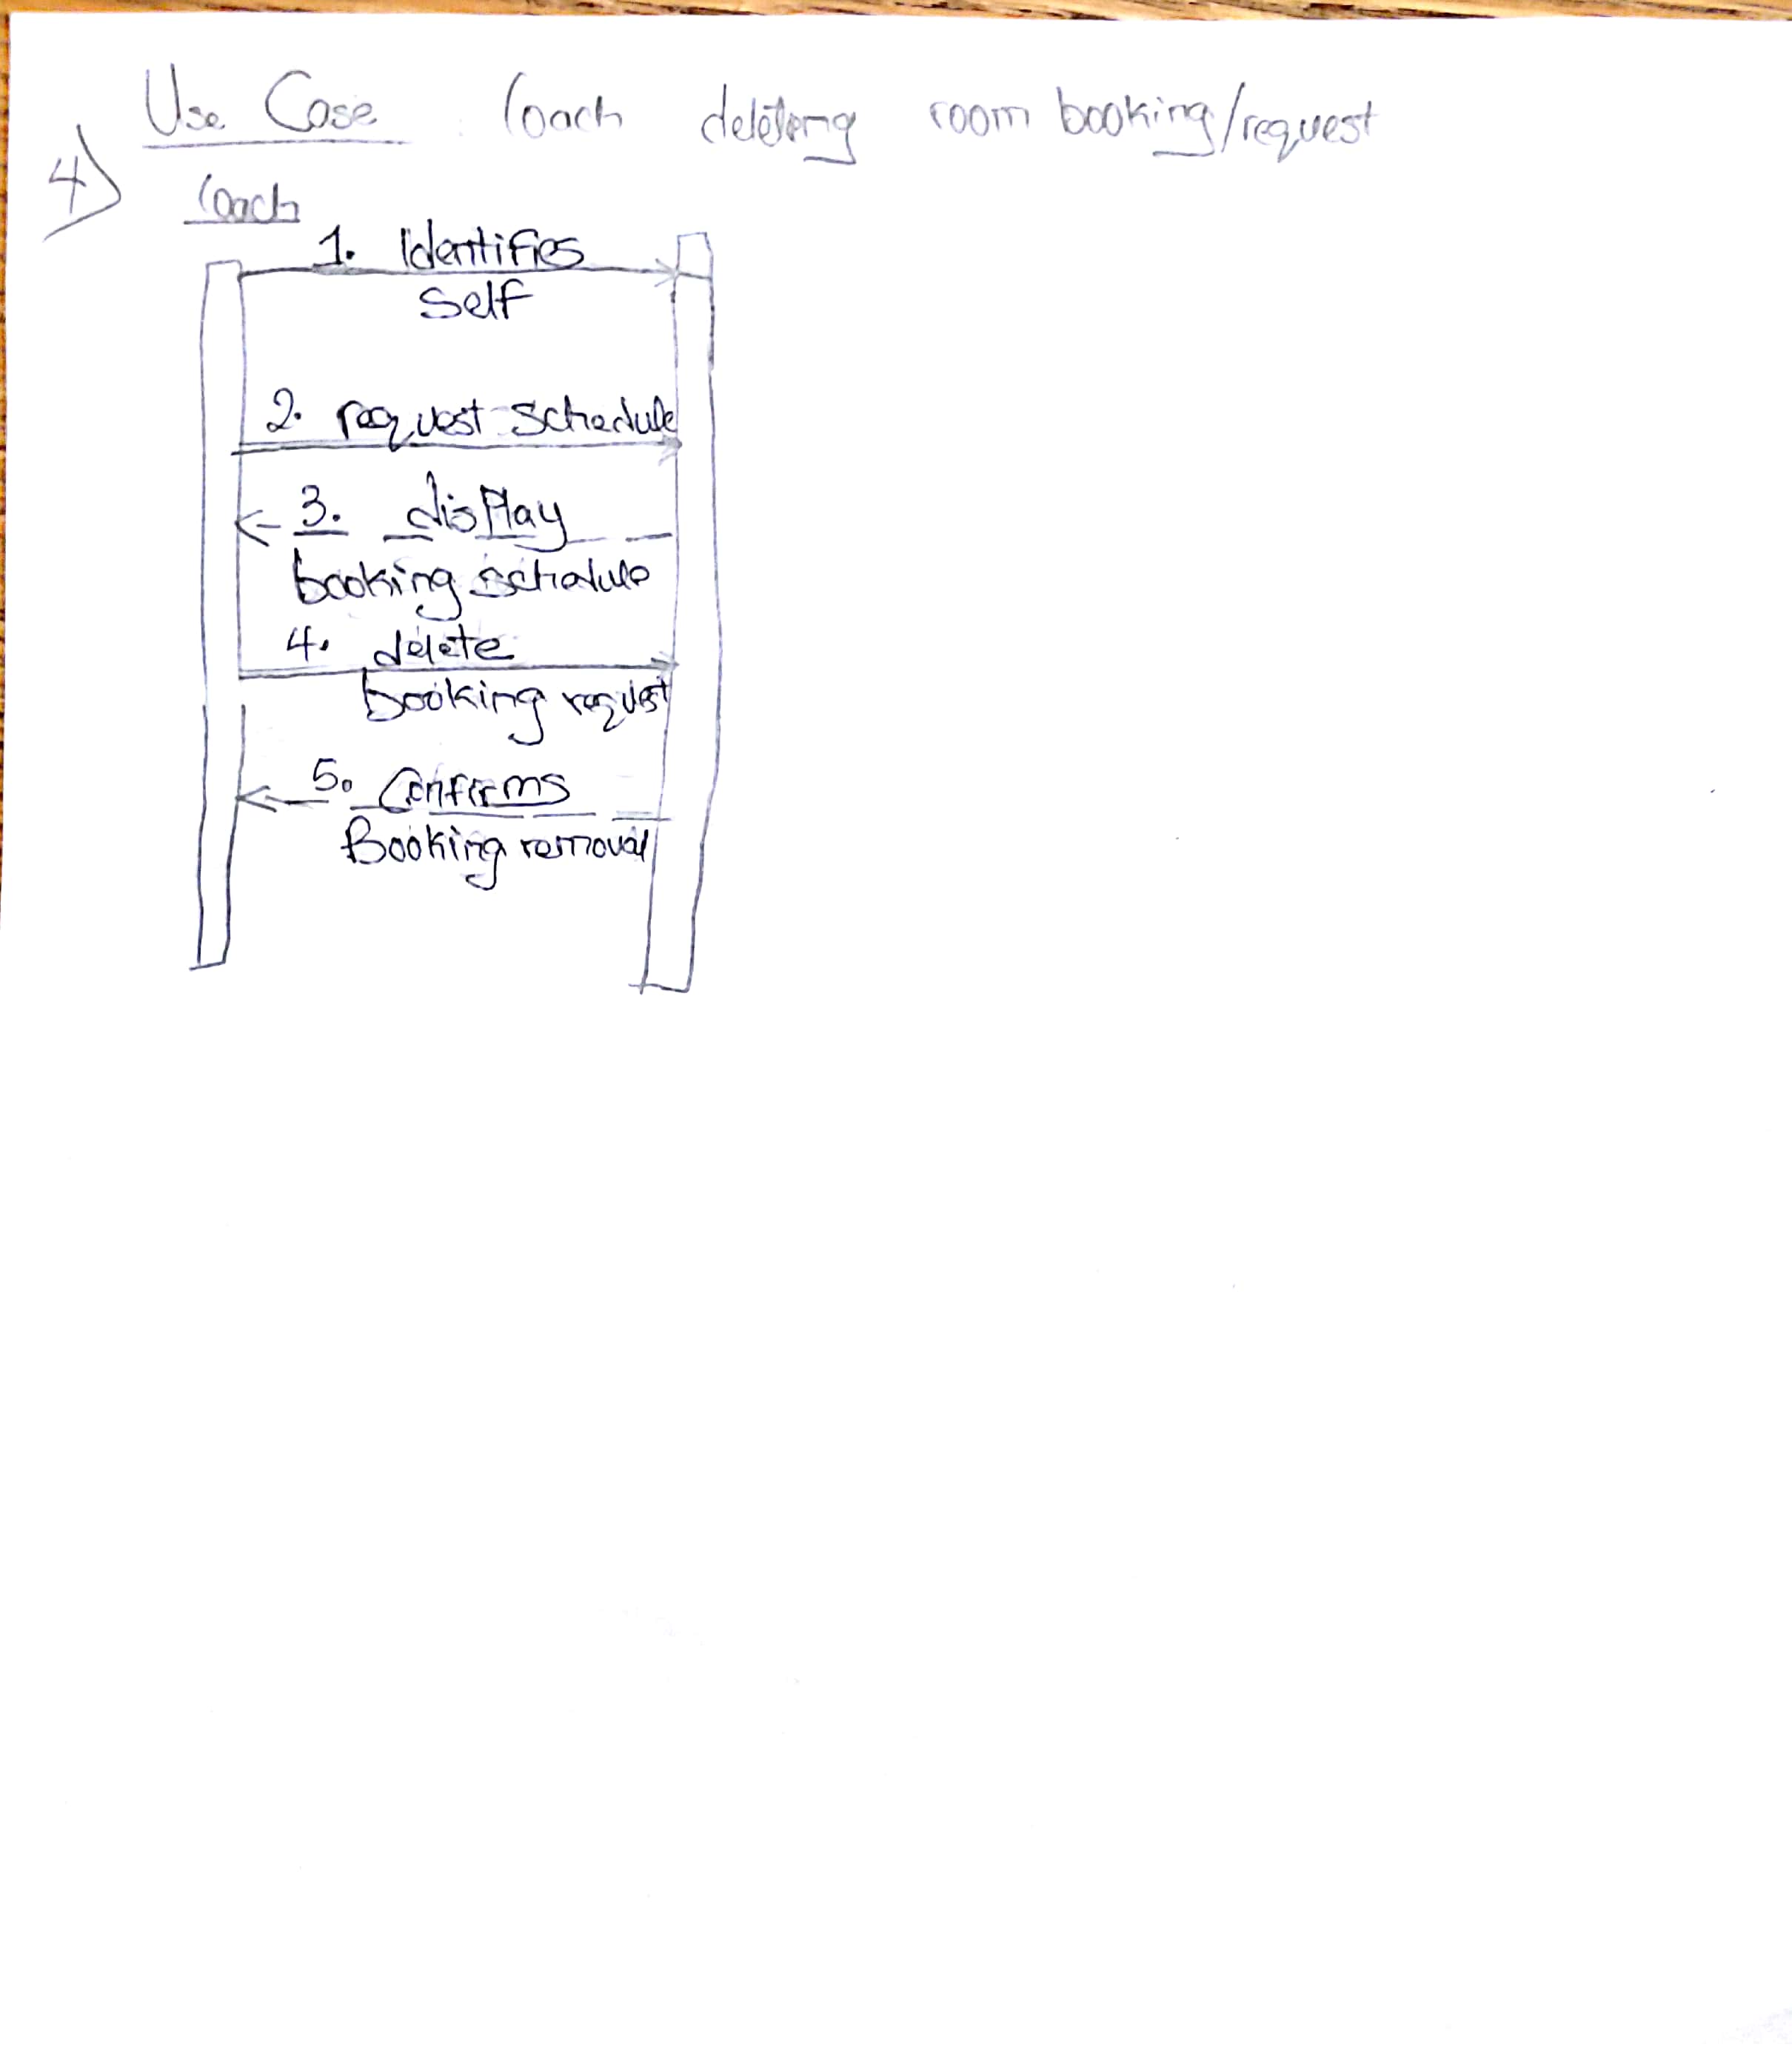 Use Case : Coach deleting room booking/request
4)
Coach
1. Identifies
Self
2. request schedule
3. display
booking schedule
4. delete
booking request
5. Confirms
Booking removal